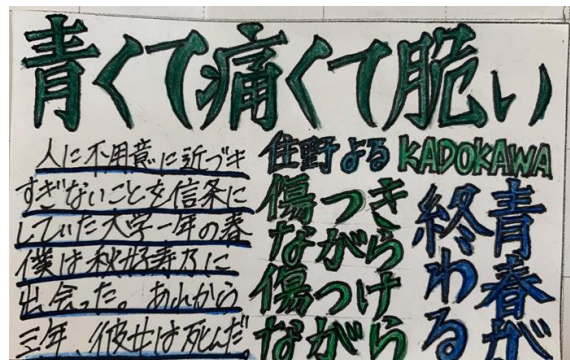 青くて痛くて脆い
住野よる KADOKAWA
人に不用意に近づき
すぎないことを信条に
していた大学一年の春
僕は秋好寿乃に
出会った。あれから
三年、彼女は死んだ。
傷つき
ながら
傷つけ
ながら
青春が
終わる